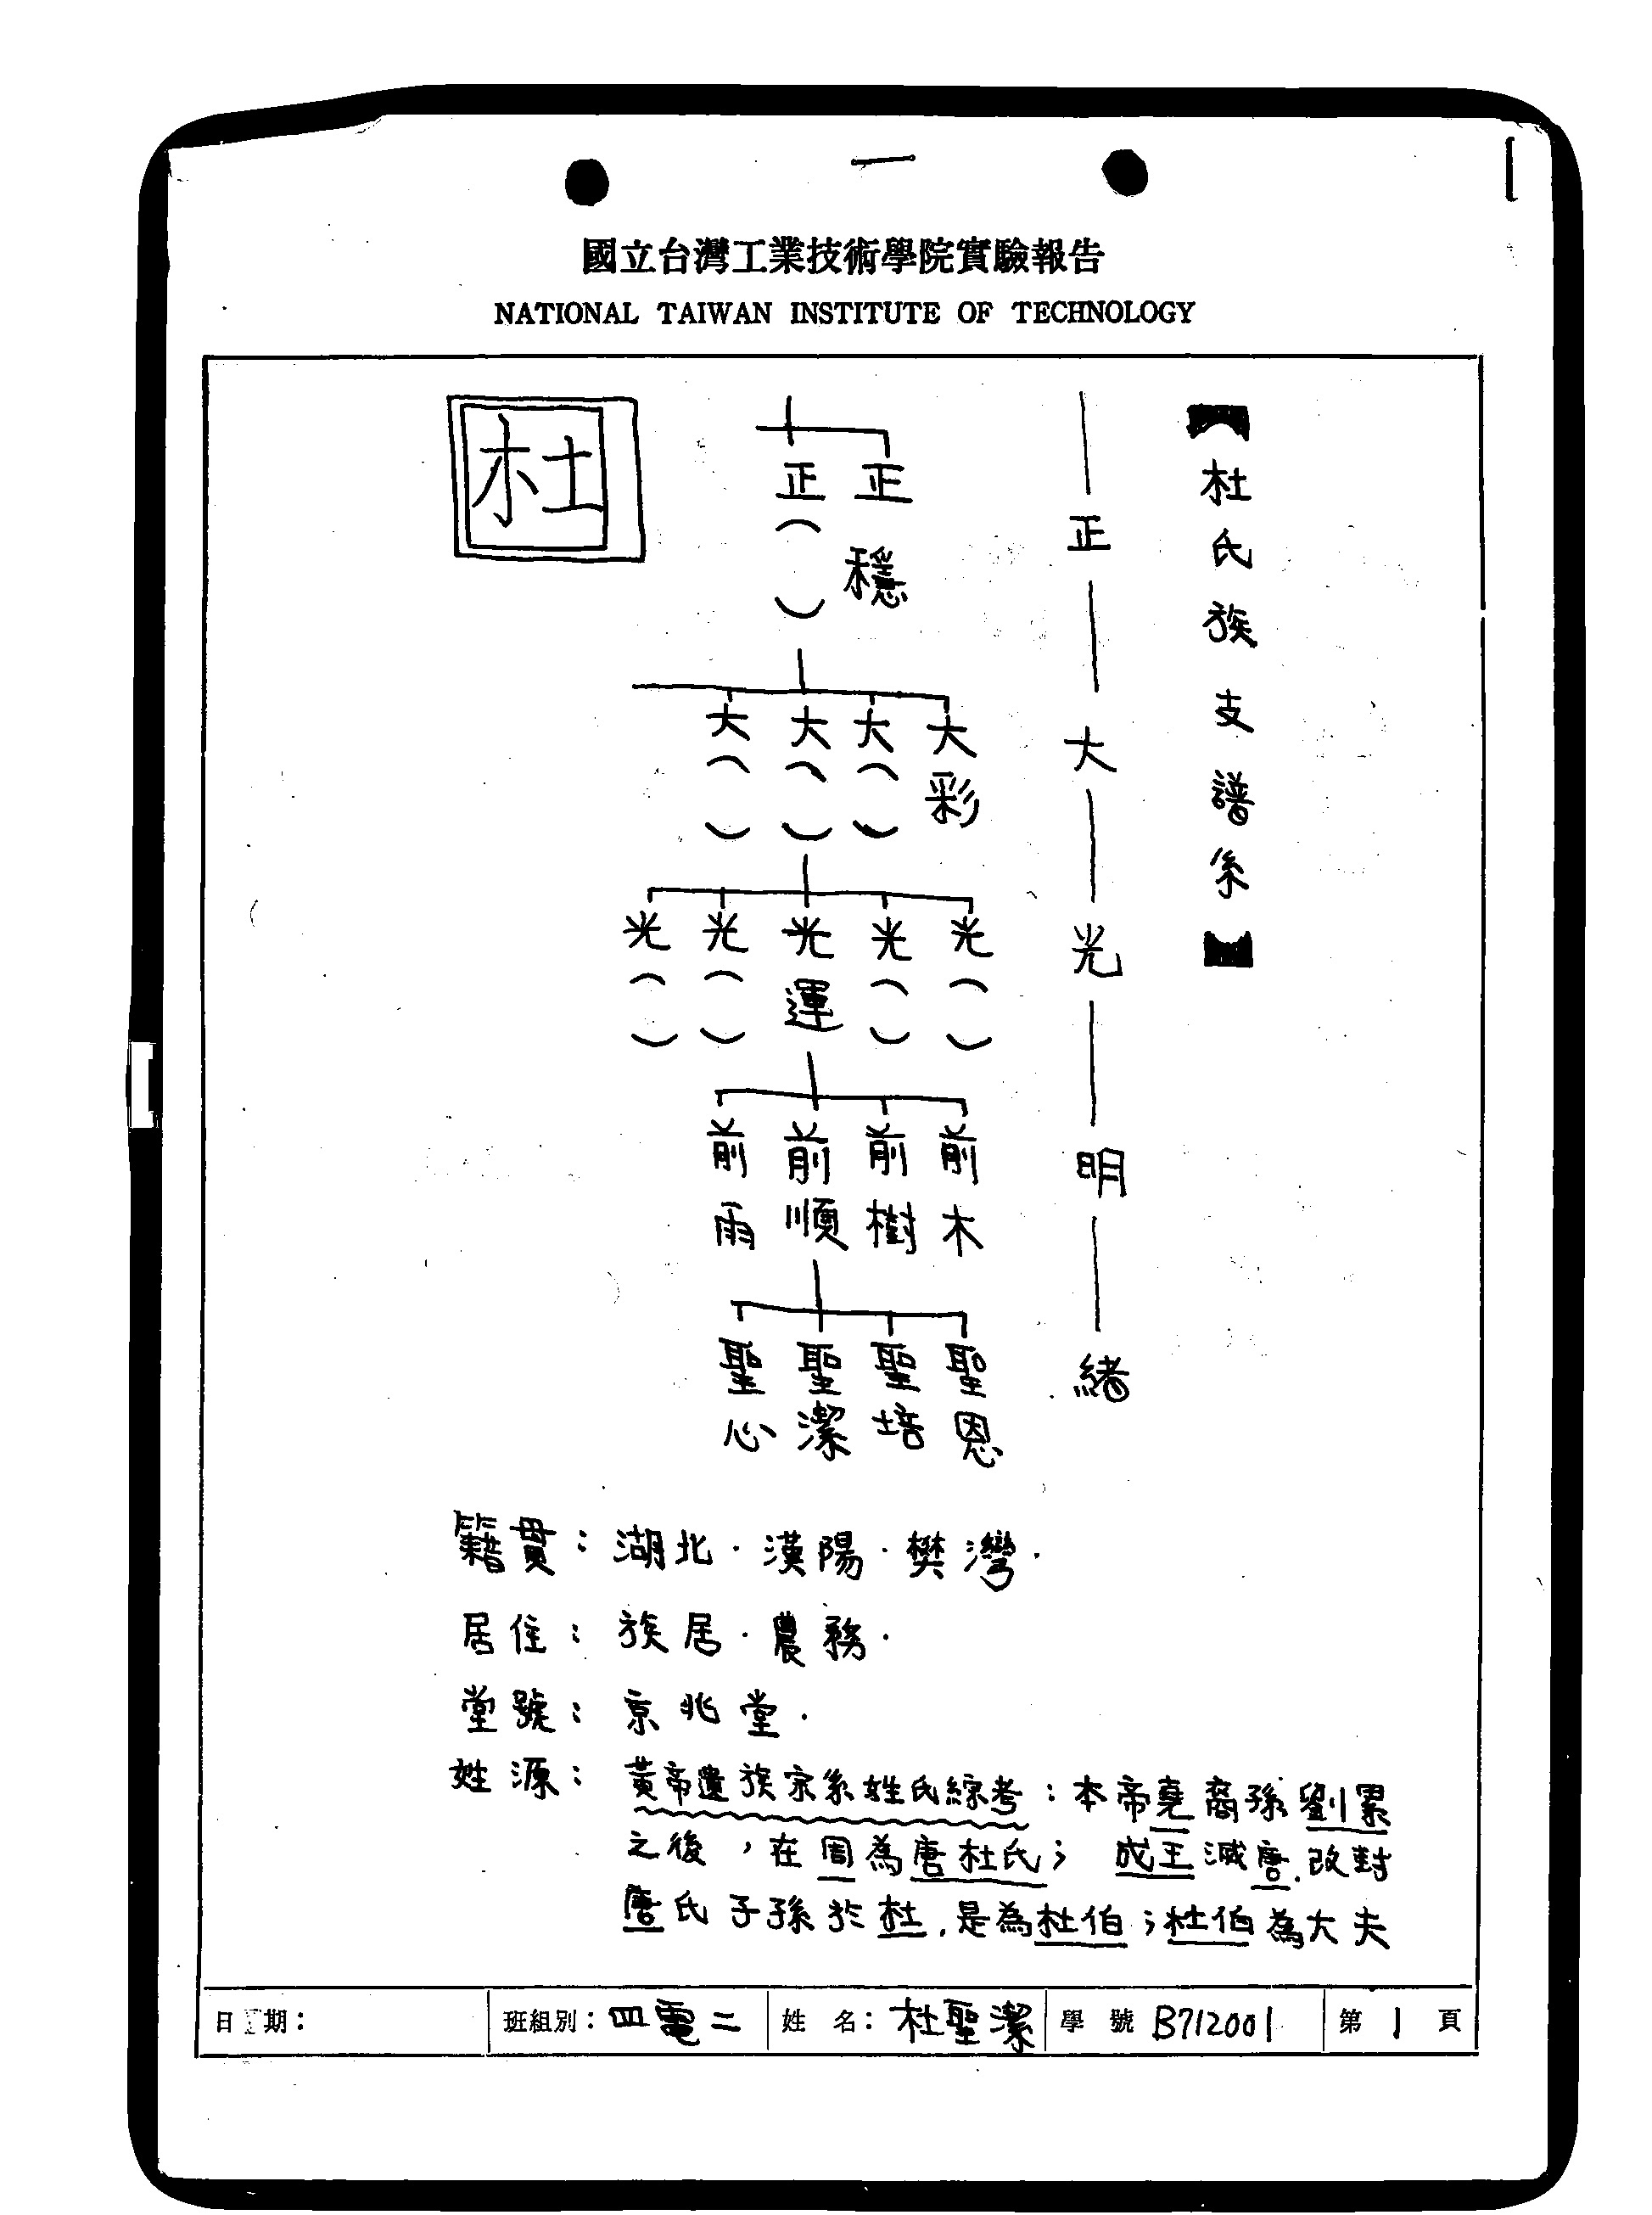 國立台灣工業技術學院實驗報告
NATIONAL TAIWAN INSTITUTE OF TECHNOLOGY
【杜氏族支譜系】
正—大—光—明—緒
杜
正( ) 正穩
大( ) 大( ) 大( ) 大彩
光( ) 光( ) 光運 光( ) 光( )
前雨 前順 前樹 前木
聖心 聖潔 聖培 聖恩
籍貫：湖北．漢陽．樊灣．
居住：族居．農務．
堂號：京兆堂．
姓源：黃帝遺族宗系姓氏綜考：本帝堯裔孫劉累
之後，在周為唐杜氏；成王滅唐．改封
唐氏子孫於杜．是為杜伯；杜伯為大夫
日期： 班組別：四電二 姓名：杜聖潔 學號 B712001 第 1 頁